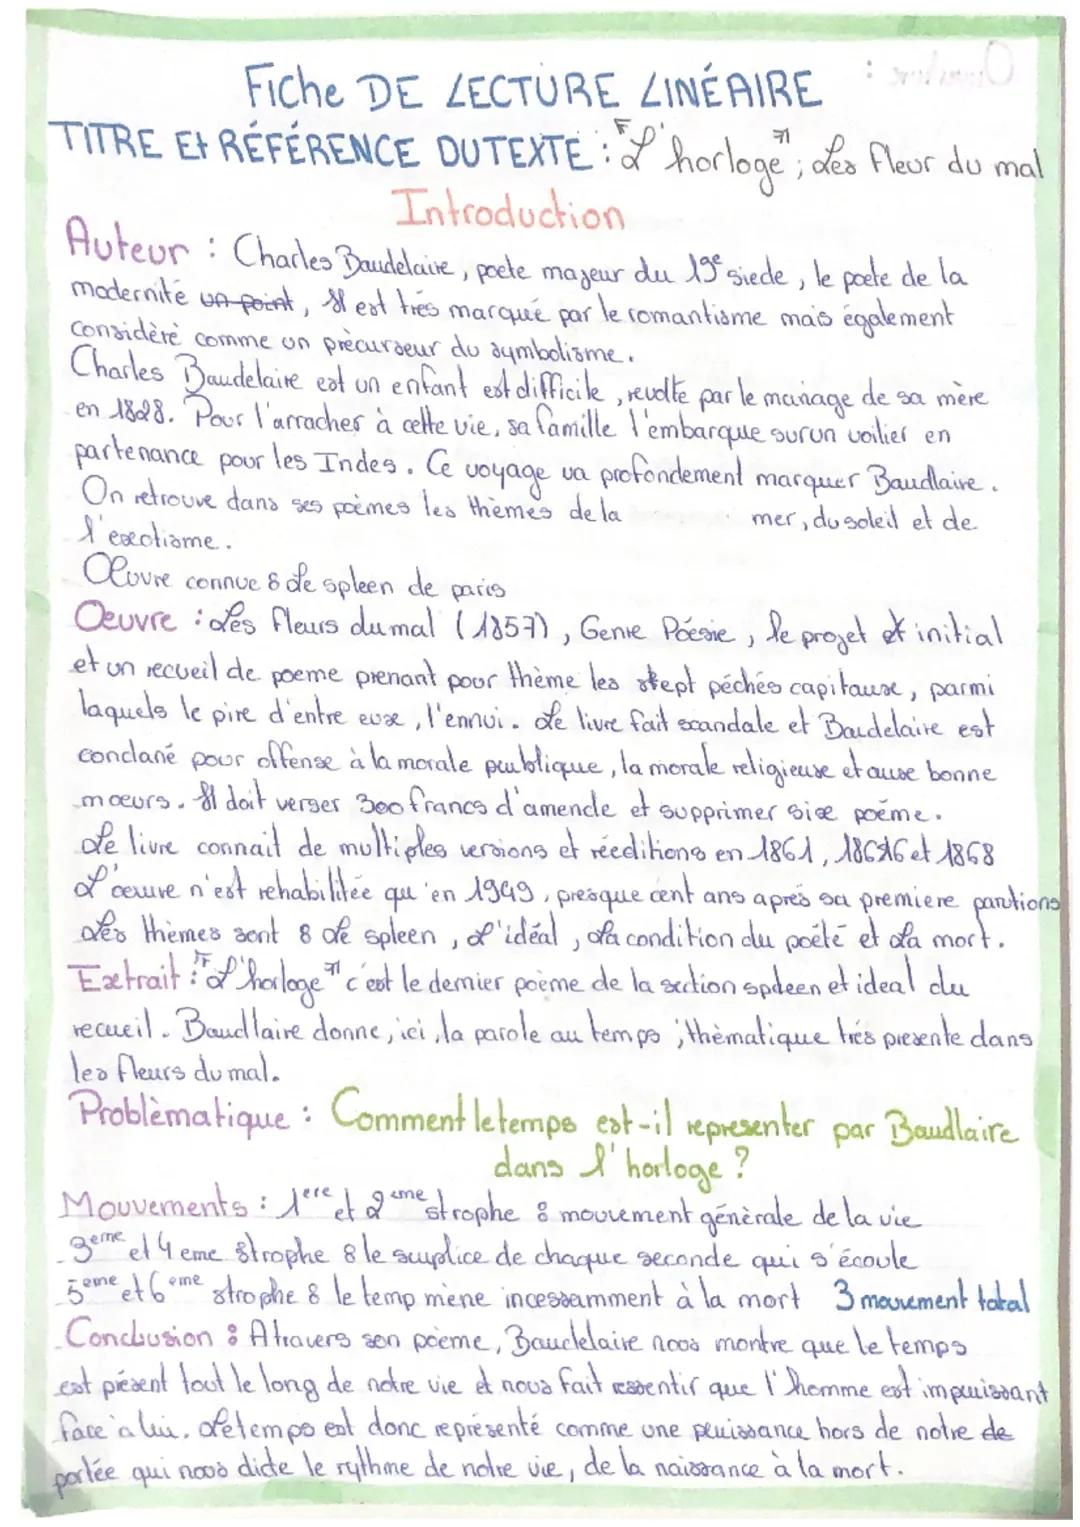 Fiche DE LECTURE LINÉAIRE
TITRE Et RÉFÉRENCE DU TEXTE : "L'horloge" ; Les fleur du mal
Introduction
Auteur : Charles Baudelaire, poete majeur du 19e siecle, le poete de la
modernité un point, Il est très marqué par le romantisme mais également
considèrè comme un prècurseur du symbolisme.
Charles Baudelaire est un enfant est difficile, revolte par le mariage de sa mère
en 1828. Pour l'arracher à cette vie, sa famille l'embarque sur un voilier en
partenance pour les Indes. Ce voyage va profondement marquer Baudlaire.
On retrouve dans ses poèmes les thèmes de la mer, du soleil et de
l'exotisme.
Oeuvre connue : Le spleen de paris
Oeuvre : Les fleurs du mal (1857), Genre Poésie, le projet et initial
et un recueil de poeme prenant pour thème les stept péchés capitaux, parmi
laquels le pire d'entre eux, l'ennui. Le livre fait scandale et Baudelaire est
condané pour offense à la morale publique, la morale religieuse et aux bonne
moeurs. Il doit verser 300 francs d'amende et supprimer six poéme.
Le livre connait de multiples versions et rééditions en 1861, 1866 et 1868
L'oeuvre n'est rehabilitée qu'en 1949, presque cent ans aprés sa premiere parutions
Les thèmes sont : Le spleen, L'idéal, La condition du poété et La mort.
Extrait : "L'horloge" c'est le dernier poème de la section spleen et ideal du
recueil. Baudlaire donne, ici, la parole au temps ; thèmatique très presente dans
les fleurs du mal.
Problèmatique : Comment le temps est-il representer par Baudlaire
dans l'horloge ?
Mouvements : 1ere et 2eme strophe : mouvement génèrale de la vie
3eme et 4eme strophe : le suplice de chaque seconde qui s'écoule
5eme et 6eme strophe : le temp mène incessamment à la mort 3 mouvement total
Conclusion : A travers son poème, Baudelaire nous montre que le temps
est présent tout le long de notre vie et nous fait ressentir que l'homme est impuissant
face à lui. Le temps est donc représenté comme une puissance hors de notre de
portée qui nous dicte le rythme de notre vie, de la naissance à la mort.